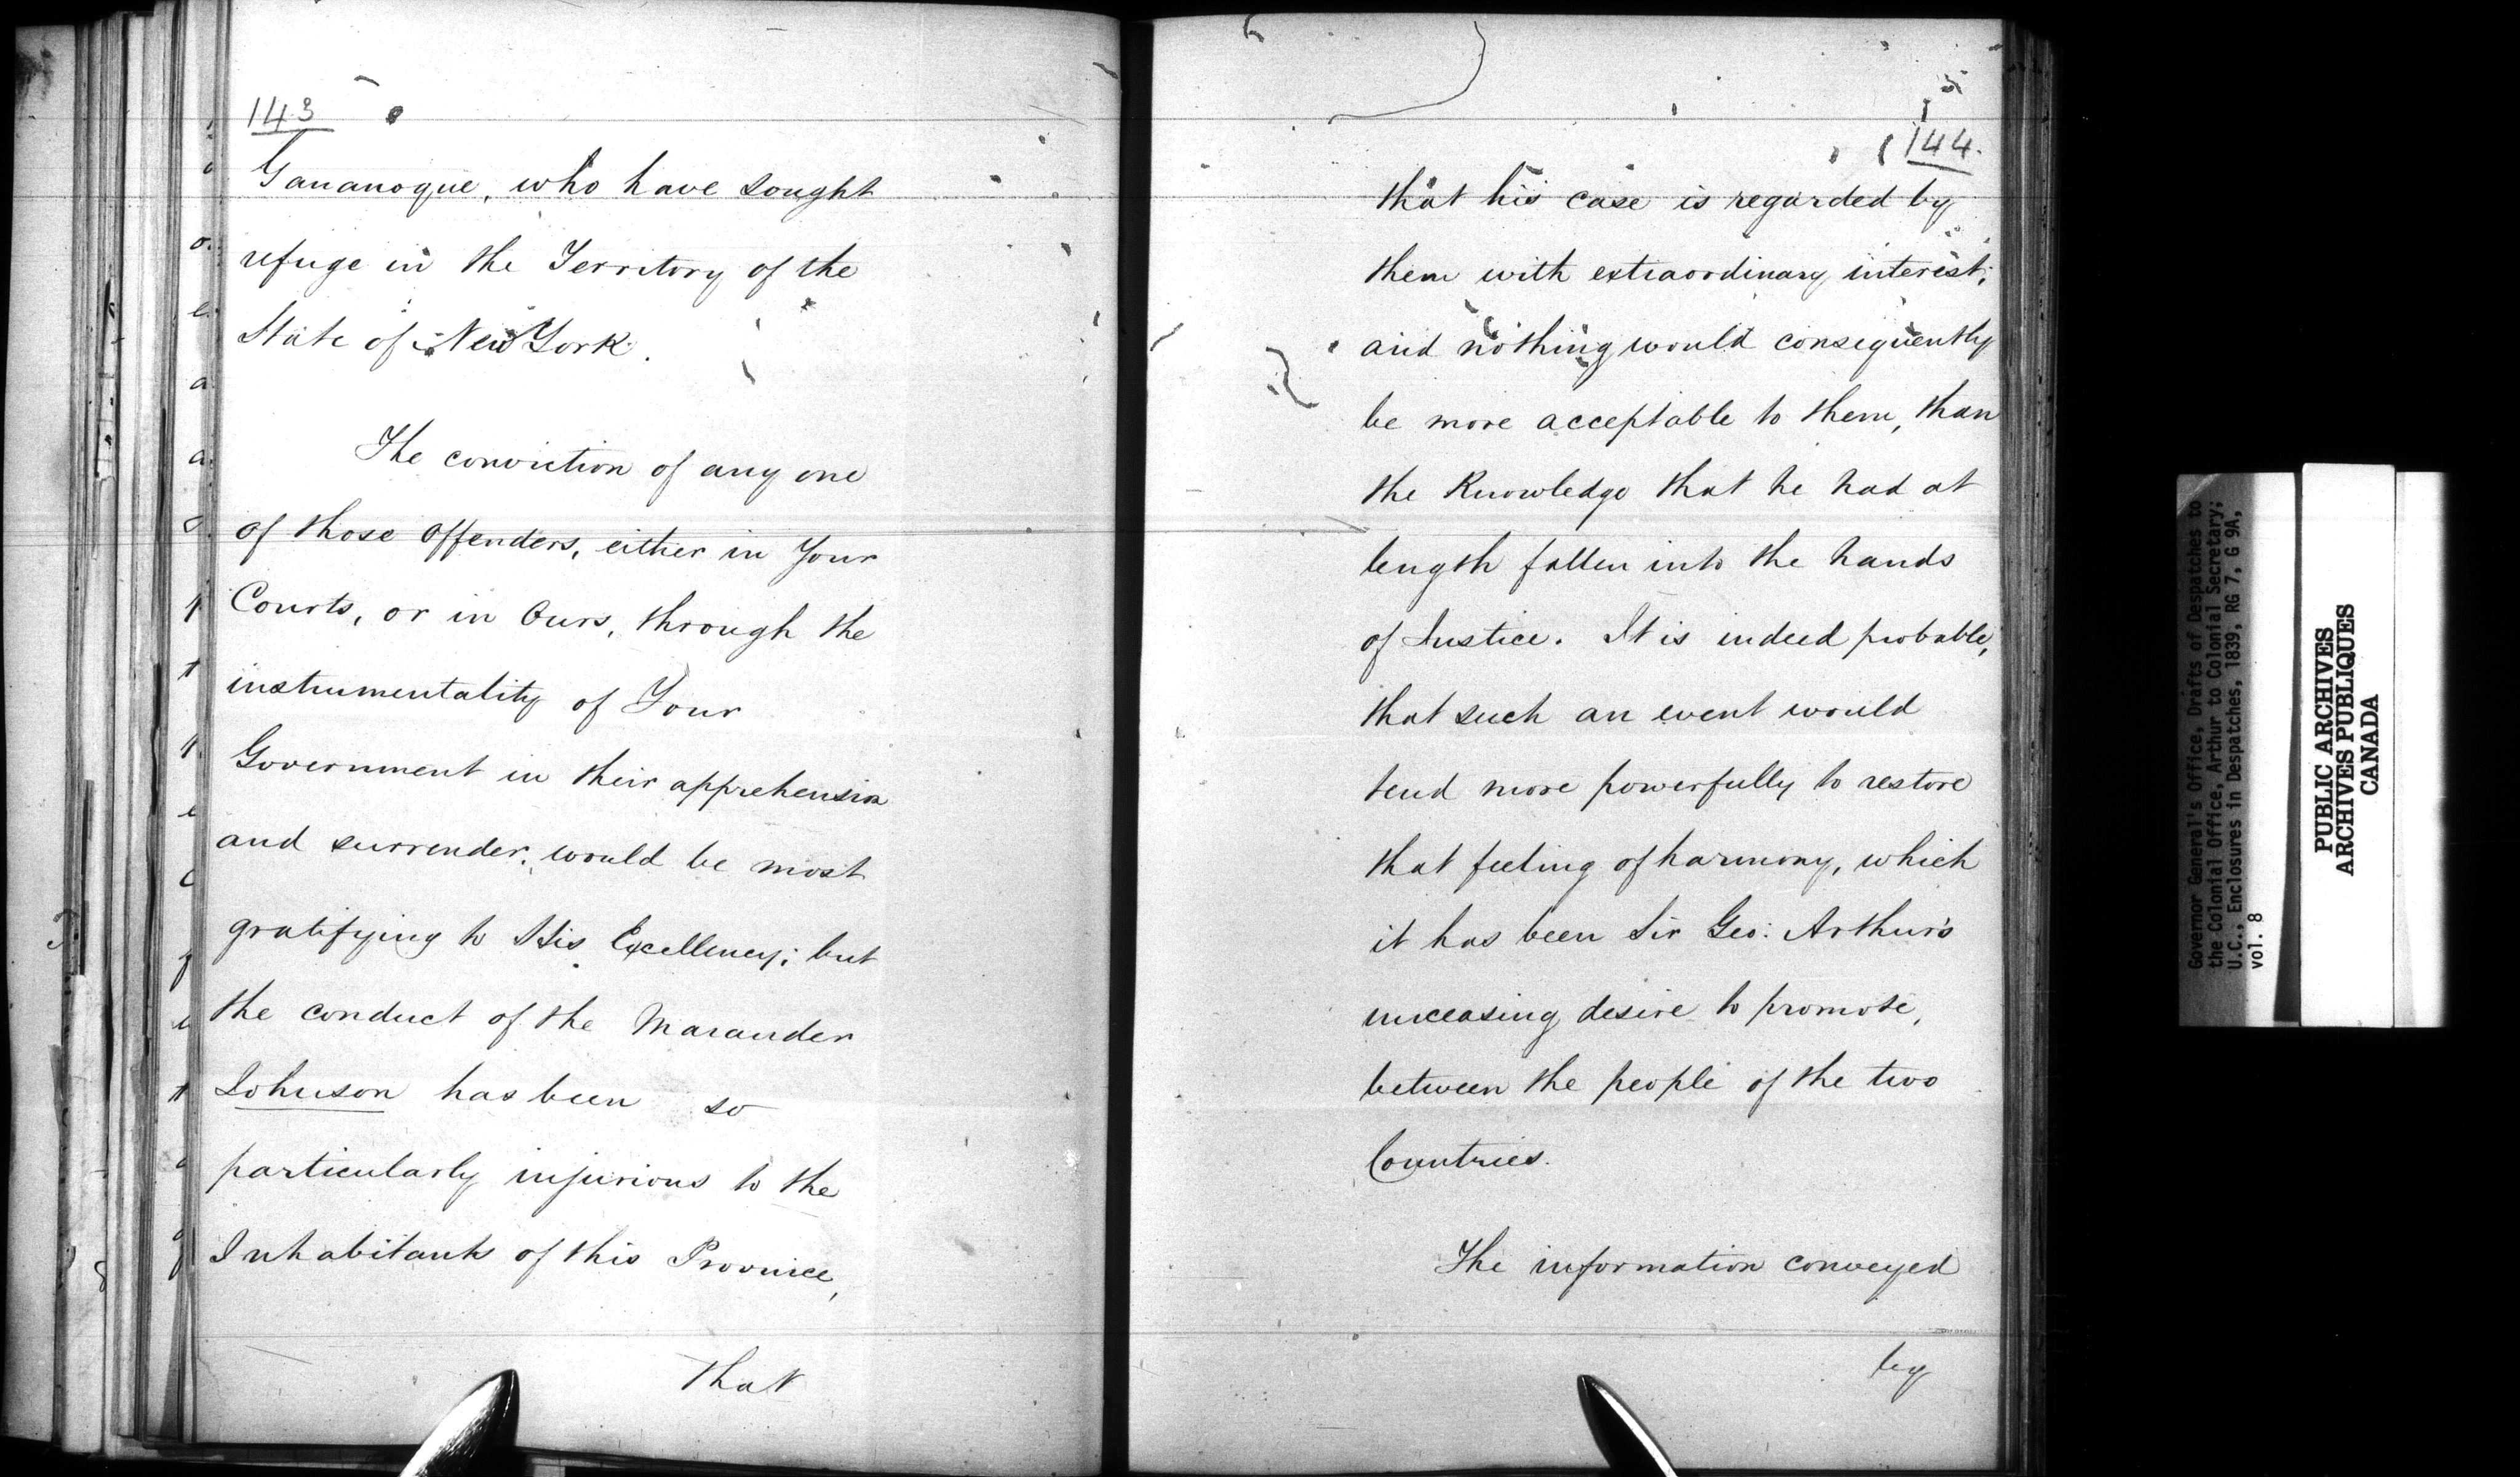 143
Gananoque, who have sought
refuge in the Territory of the
State of New York.
The conviction of any one
of those offenders, either in Your
Courts, or in Ours, through the
instrumentality of Your
Government in their apprehension
and surrender, would be most
gratifying to His Excellency; but
the conduct of the Marauder
Johnson has been so
particularly injurious to the
Inhabitants of this Province,
that
144.
that his case is regarded by
them with extraordinary interest;
and nothing would consequently
be more acceptable to them, than
the Knowledge that he had at
length fallen into the hands
of Justice. It is indeed probable,
that such an event would
tend more powerfully to restore
that feeling of harmony, which
it has been Sir Geo: Arthur's
unceasing desire to promote,
between the people of the two
Countries.
The information conveyed
by
Governor General's Office, Drafts of Despatches to
the Colonial Office, Arthur to Colonial Secretary;
U.C., Enclosures in Despatches, 1839, RG 7, G 9A,
vol. 8
PUBLIC ARCHIVES
ARCHIVES PUBLIQUES
CANADA